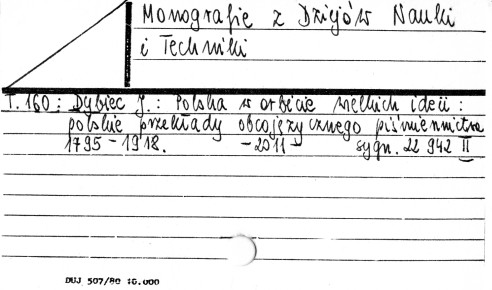 Monografie z Dziejów Nauki
i Techniki
T. 160 : Dybiec J. : Polska w orbicie wielkich ideii :
polskie przekłady obcojęzycznego piśmiennictwa
1795 - 1918. - 2011 - sygn. 22 942 II
DUJ 507/80 10.000